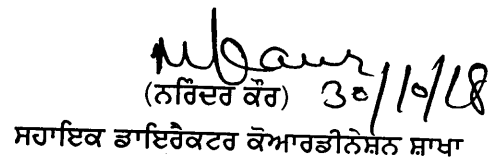 (ਨਰਿੰਦਰ ਕੌਰ) 30/10/18
ਸਹਾਇਕ ਡਾਇਰੈਕਟਰ ਕੋਆਰਡੀਨੇਸ਼ਨ ਸ਼ਾਖਾ